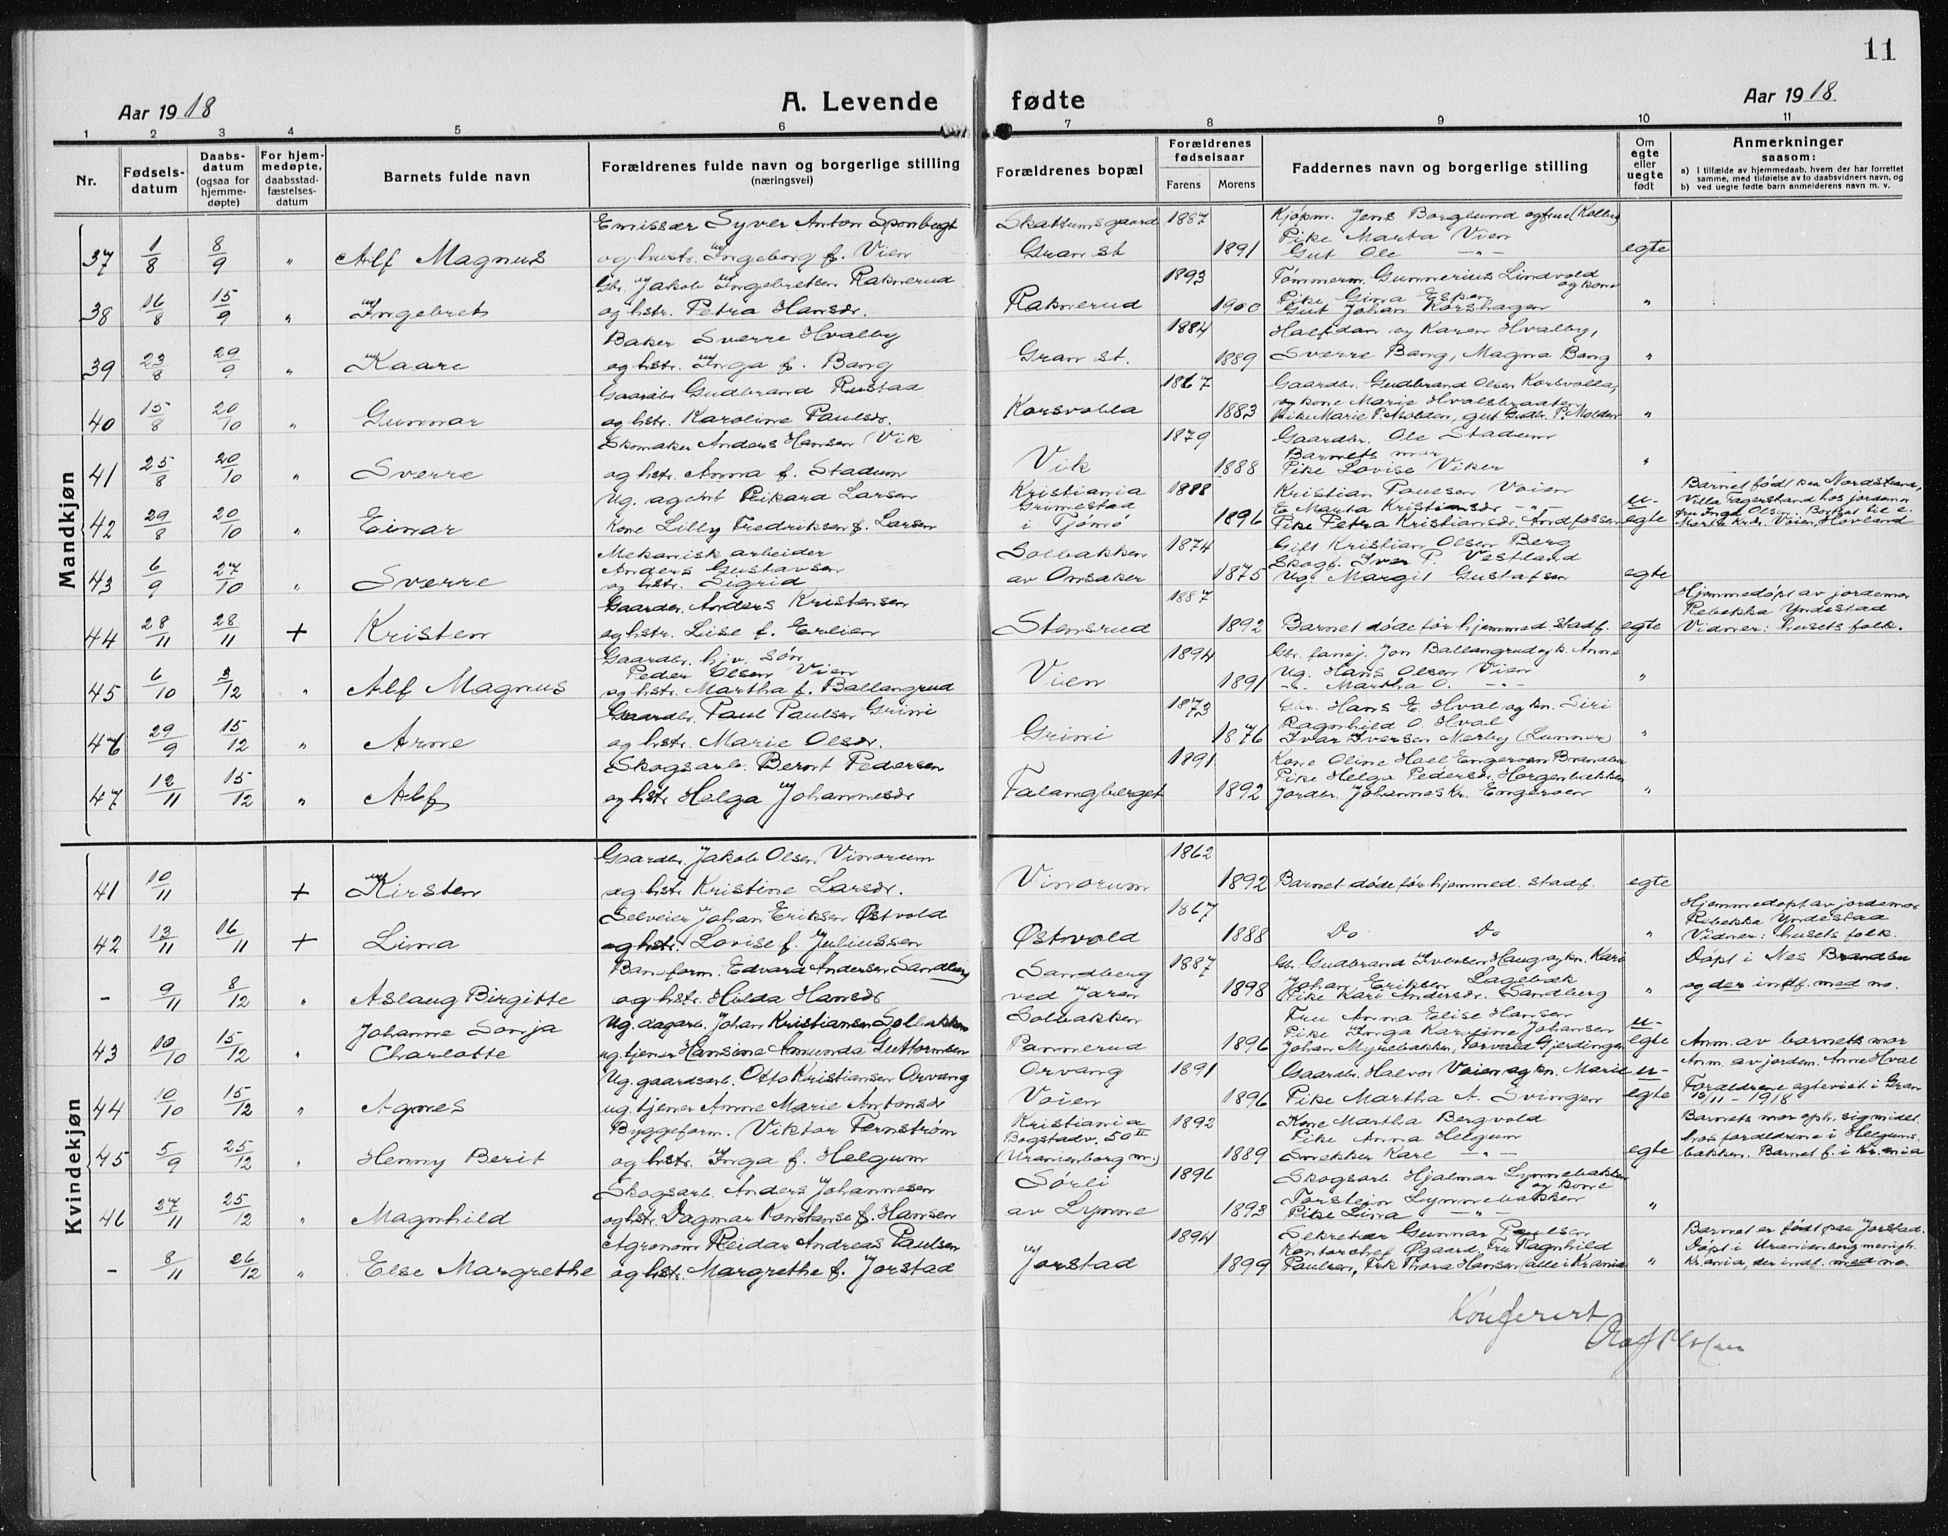 11
Aar 1918
A. Levende fødte
Aar 1918.
1 2 3 4 5 6 7 8 9 10 11
Nr.
Fødsels-datum
Daabs-datum (ogsaa for hjemme-døpte)
For hjem-medøpte, daabsstad-fæstelses-datum
Barnets fulde navn
Forældrenes fulde navn og borgerlige stilling (næringsvei)
Forældrenes bopæl
Forældrenes fødselsaar
Farens Morens
Faddernes navn og borgerlige stilling
Om egte eller uegte født
Anmerkninger saasom:
a) I tilfælde av hjemmedaab, hvem der har forrettet samme, med tilføielse av to daabsvidners navn, og
b) ved uegte fødte barn anmelderens navn m. v.
Mandkjøn
Emissær Syver Anton Sponbugt Skattumsgaard 1887 Kjøpm. Jens Borglund og frue (Kolby)
Pike Marta Vien
37 1/8 8/9 " Alf Magnus og hustr. Ingeborg f. Vien Gran st 1891 Gut Ole -"- egte
Gbr. Jakob Ingebretsen Raknerud 1893 Tømmerm. Gunnerius Lindvold og kone
Pike Gina Espen
38 16/8 15/9 " Ingebret og hstr. Petra Hansdr. Raknerud 1900 Gut Johan Korshagen "
Baker Sverre Hvalby 1884 Halfdan og Karen Hvalby,
39 23/8 29/9 " Kaare og hstr. Inga f. Bang Gran st. 1889 Sverre Bang, Magna Bang "
Gaardbr Gudbrand Rustad 1867 Gaardbr. Gudbrand Olsen Korsvolla,
og kone Marie Hvalsbraaten
40 15/8 20/10 " Gunnar og hstr. Karoline Paulsdr. Korsvolla 1883 Pike Marie P. Molden, gut Gudbr. P. Molden "
Skomaker Anders Hansen Vik 1879 Gaardbr. Ole Stadum
Barnets mor
41 25/8 20/10 " Sverre og hstr. Anna f. Stadum Vik 1888 Pike Lovise Viker "
Ug. agent Rikard Larsen Kristiania 1888 Kristian Paulsen Voien u- Barnet født paa Nordstrand,
Grimestad E. Marta Kristiansdr -"- Villa Fagerstrand hos jordemor
42 29/8 20/10 " Einar Kone Lilly Fredriksen f. Larsen i Tjømø 1896 Pike Petra Kristiansdr Andfossen egte fru Inga Olsen. Bortsat til e.
Marta Krdr. Voien, Hovland
Mekanisk arbeider Solbakken 1874 Gift Kristian Olsen Berg
Anders Gustavsen Skogf. Iver P. Vestland
43 6/9 27/10 " Sverre og hstr. Sigrid av Onsaker 1875 Ug. Margit Gustafsen egte
Gaardbr. Anders Kristensen 1887 Hjemmedøpt av jordemor
Rebekka Yndestad
44 28/11 28/11 + Kristen og hstr. Lise f. Erlien Stensrud 1892 Barnet døde før hjemmed. stadf. egte Vidner: husets folk.
Gaardbr. hjv. søn 1894 Gbr. fanej. Jon Ballangrud og k. Anne
Peder Olsen Vien Ug. Hans Olsen Vien
45 6/10 3/12 " Alf Magnus og hstr. Martha f. Ballangrud Vien 1891 -"- Martha O. -"- "
Gaardbr. Paul Paulsen Grini 1873 Gbr. Hans E. Hval og kn. Siri
Ragnhild O. Hval
46 29/9 15/12 " Arne og hstr. Marie Olsdr. Grini 1876 Ivar Iversen Merby (Lunner) "
Skogsarb. Bernt Pedersen 1891 Kone Oline Hoel Engeroen Brandbu
Pike Helga Pedersdr. Horgenbakken
47 12/11 15/12 " Alf og hstr Helga Johannesdr Falangberget 1892 Jordbr. Johannes Kr. Engeroen "
Kvindekjøn
Gaardbr. Jakob Olsen Vinorum 1862
41 10/11 + Kirsten og hstr Kristine Larsdr. Vinorum 1892 Barnet døde før hjemmed. stadf. egte
Selveier Johan Eriksen Østvold 1867 Hjemmedøpt av jordemor
Rebekka Yndestad
42 13/11 16/11 + Lina og hstr. Lovise f. Juliussen Østvold 1888 Do Do " Vidner: husets folk.
Baneform. Edvard Andersen Sandberg Sandberg 1887 Gbr. Gudbrand Iversen Haug og kn. Kari Døpt i Nes Brandbu
Johan Eriksen Lagebæk
- 9/11 8/12 " Aslaug Birgitte og hstr. Hilda Hansdr ved Jaren 1898 Pike Kari Andersdr. Sandberg " og der indf. med no.
Johanne Sonja Ug. dagarb. Johan Kristiansen Solbakken Solbakken Fru Anna Elise Hansen u-
Pike Inga Karoline Johansen
43 10/10 15/12 " Charlotte ug. tjener Hansine Amunda Guttormsen Pannerud 1896 Johan Myrebakken, Torvald Gjerdingen egte Anm. av barnets mor
Ug. gaardsarb. Otto Kristiansen Orvang Orvang 1891 Gaardbr. Halvor Voien og kn. Marie u- Anm. av jordem. Anne Hval
44 10/10 15/12 " Agnes ug. tjener Anne Marie Antonsdr Voien 1896 Pike Martha A. Svingen egte Forældrene egteviet i Gran 15/11-1918
Byggeform. Viktor Fernstrøm Kristiania 1892 Kone Martha Bergvold Barnets mor oph. sig midlt.
Bogstadv. 50 II Pike Anna Helgum hos forældrene i Helgums-
45 5/9 25/12 " Henny Berit og hstr. Inga f. Helgum (Uranienborg m.) 1889 Snekker Karl -"- egte bakken. Barnet f. i Kr.ania
Skogsarb. Anders Johannesen Sørli 1896 Skogsarb. Hjalmar Lynnebakken og kone
Torstein Lynnebakken
46 27/11 25/12 " Magnhild og hstr. Dagmar Konstanse f. Hansen av Lynne 1893 Pike Lina -"- "
Agronom Reidar Andreas Paulsen 1894 Sekretær Gunnar Paulsen Barnet er født paa Jorstad.
Kontorchef Øgaard, Fru Ragnhild Døpt i Uranienborg menigh.
- 8/11 26/12 " Else Margrethe og hstr. Margrethe f. Jorstad Jorstad 1899 Paulsen, Frk Thora Hansen (alle i Krania) " Kr.ania, der indf. med no.
Konferert
Olaf Olsen